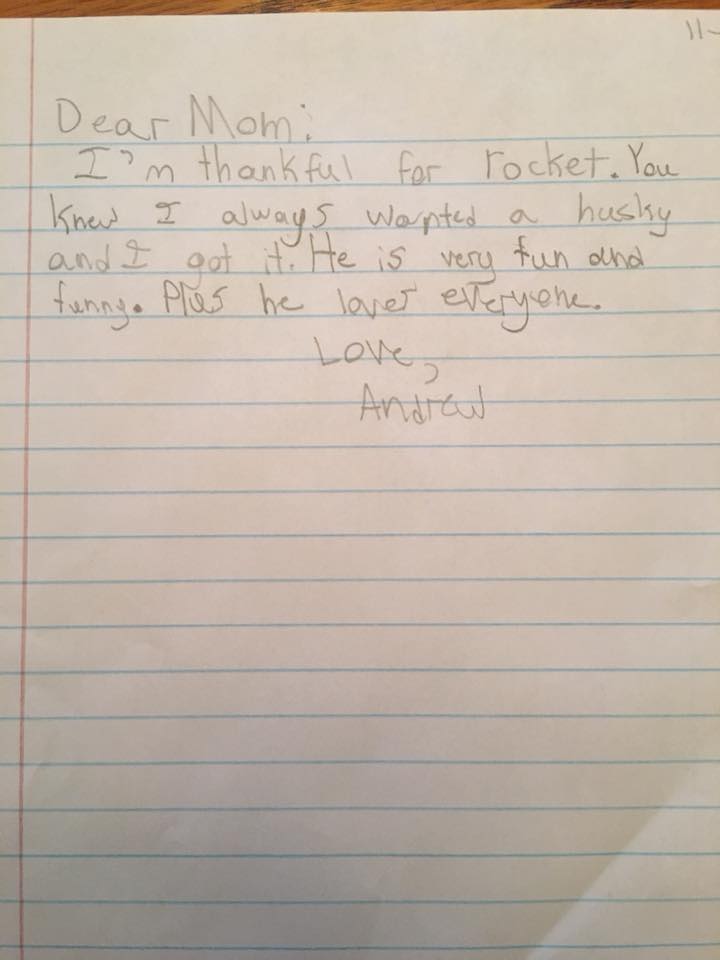 11-
Dear Mom:
I'm thankful for rocket. You
knew I always wanted a husky
and I got it. He is very fun and
funny. Plus he loves everyone.
Love,
Andrew